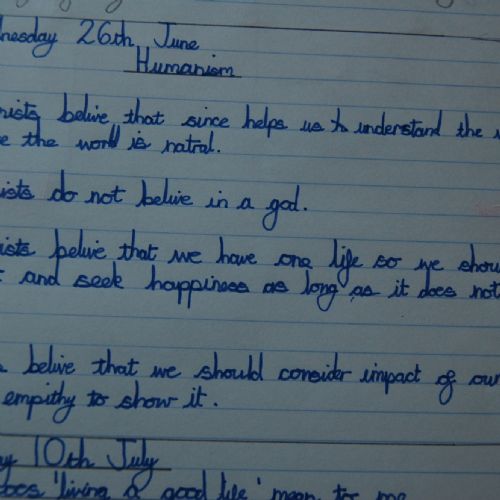 nesday 26th June
Humanism
nists belive that since helps us to understand the
e the world is natral.
ists do not belive in a god.
ists belive that we have one life so we shou
and seek happiness as long as it does not
belive that we should consider impact of our
empithy to show it.
ay 10th July
does 'living a good life' mean to me